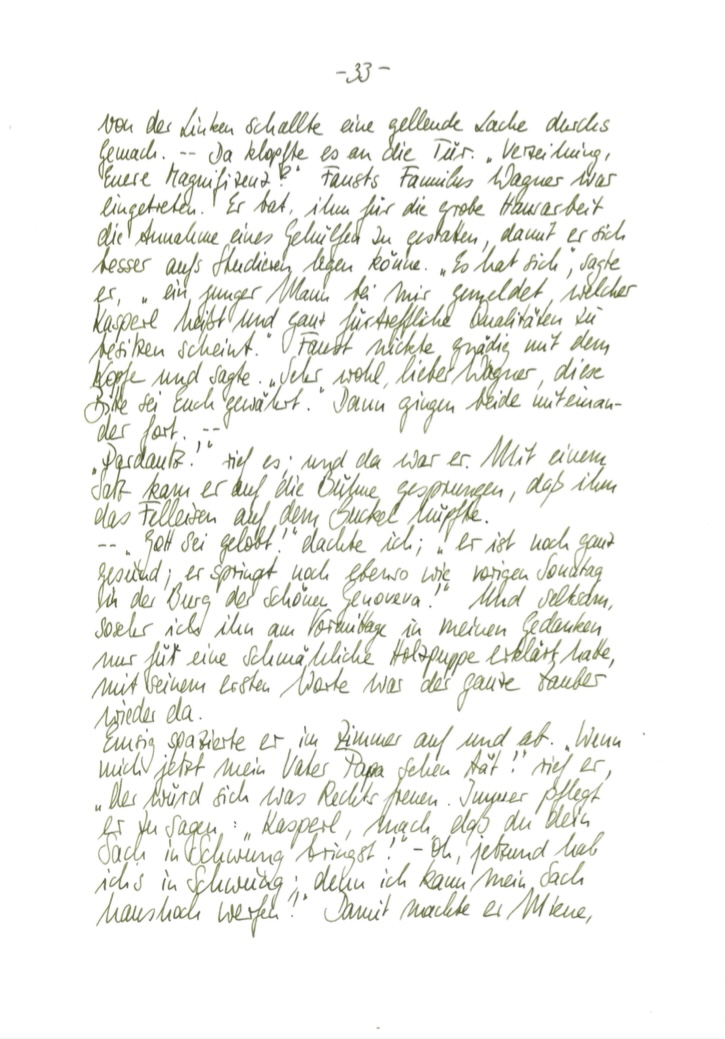 -33-
von der Linken schallte eine gellende Lache durchs
Gemach. -- Da klopfte es an die Tür. „Verzeihung,
Euere Magnifizenz!" Fausts Famulus Wagner war
eingetreten. Er bat, ihm für die grobe Hausarbeit
die Annahme eines Gehülfen zu gestatten, damit er sich
besser aufs Studieren legen könne. „Es hat sich", sagte
er, „ein junger Mann bei mir gemeldet, welcher
Kasperl heißt und ganz fürtreffliche Qualitäten zu
besitzen scheint." Faust nickte gnädig mit dem
Kopfe und sagte. „Sehr wohl, lieber Wagner, diese
Bitte sei Euch gewährt." Dann gingen beide miteinan-
der fort. --
„Pardautz!" rief es; und da war er. Mit einem
Satz kam er auf die Bühne gesprungen, daß ihm
das Felleisen auf dem Buckel hüpfte.
-- „Gott sei gelobt!" dachte ich; „er ist noch ganz
gesund; er springt noch ebenso wie vorigen Sonntag
in der Burg der schönen Genoveva!" Und seltsam,
sosehr ich ihn am Vormittage in meinen Gedanken
nur für eine schmähliche Holzpuppe erklärt hatte,
mit seinem ersten Worte war der ganze Zauber
wieder da.
Emsig spazierte er im Zimmer auf und ab. „Wenn
mich jetzt mein Vater Papa sehen tät!" rief er,
„der würd sich was Rechts freuen. Immer pflegt
er zu sagen: „Kasperl, mach, daß du dein
Sach in Schwung bringst!" - Oh, jetzund hab
ichs in Schwung; denn ich kann mein Sach
haushoch werfen!" Damit machte er Miene,